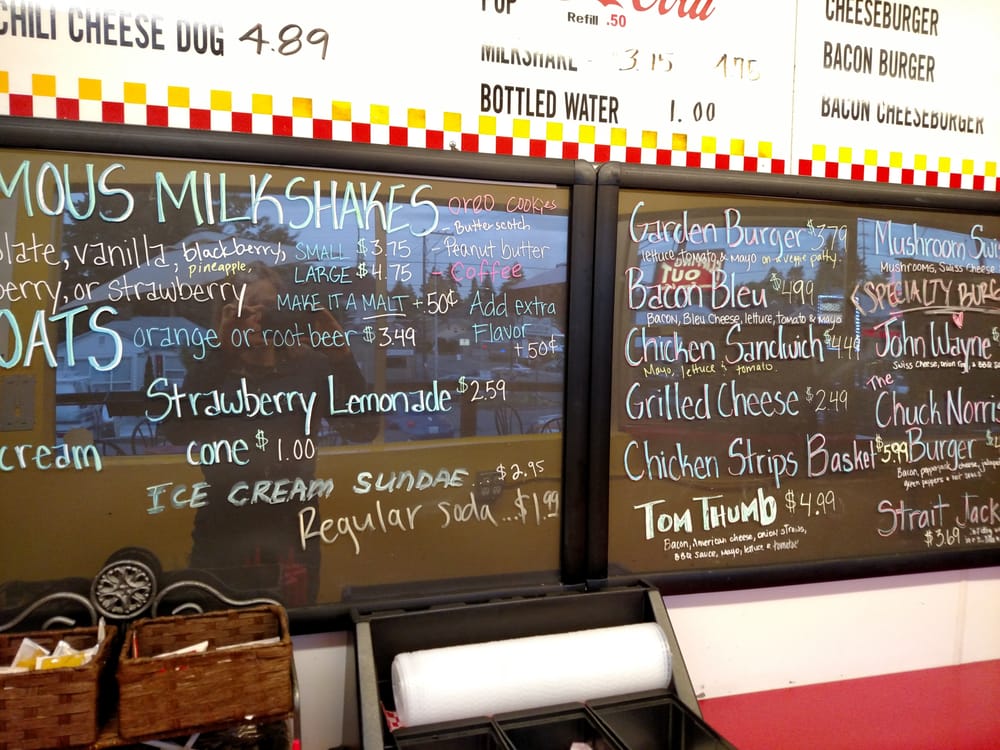 CHILI CHEESE DOG 4.89
POP
Refill .50
MILKSHAKE 3.15 4.75
BOTTLED WATER 1.00
CHEESEBURGER
BACON BURGER
BACON CHEESEBURGER
MOUS MILKSHAKES
olate, vanilla, blackberry,
pineapple,
berry, or strawberry
SMALL $3.75
LARGE $4.75
MAKE IT A MALT +50¢
oreo cookies
- Butterscotch
- Peanut butter
- Coffee
Add extra
Flavor
+50¢
OATS orange or root beer $3.49
Strawberry Lemonade $2.59
cream cone $1.00
ICE CREAM SUNDAE... $2.95
Regular soda... $1.99
Garden Burger $3.79
lettuce, tomato, & mayo on a veggie patty.
Bacon Bleu $4.99
Bacon, Bleu Cheese, lettuce, tomato & mayo
Chicken Sandwich $4.49
Mayo, lettuce & tomato.
Grilled Cheese $2.49
Chicken Strips Basket $5.99
TOM THUMB $4.99
Bacon, American cheese, onion straws,
BBQ sauce, mayo, lettuce & tomatoe
Mushroom Swi
Mushrooms, Swiss Cheese
SPECIALTY BURG
John Wayne $
Swiss Cheese, onion
The
Chuck Norri
Burger $4
Bacon, pepperjack cheese,
Strait Jack
$3.69